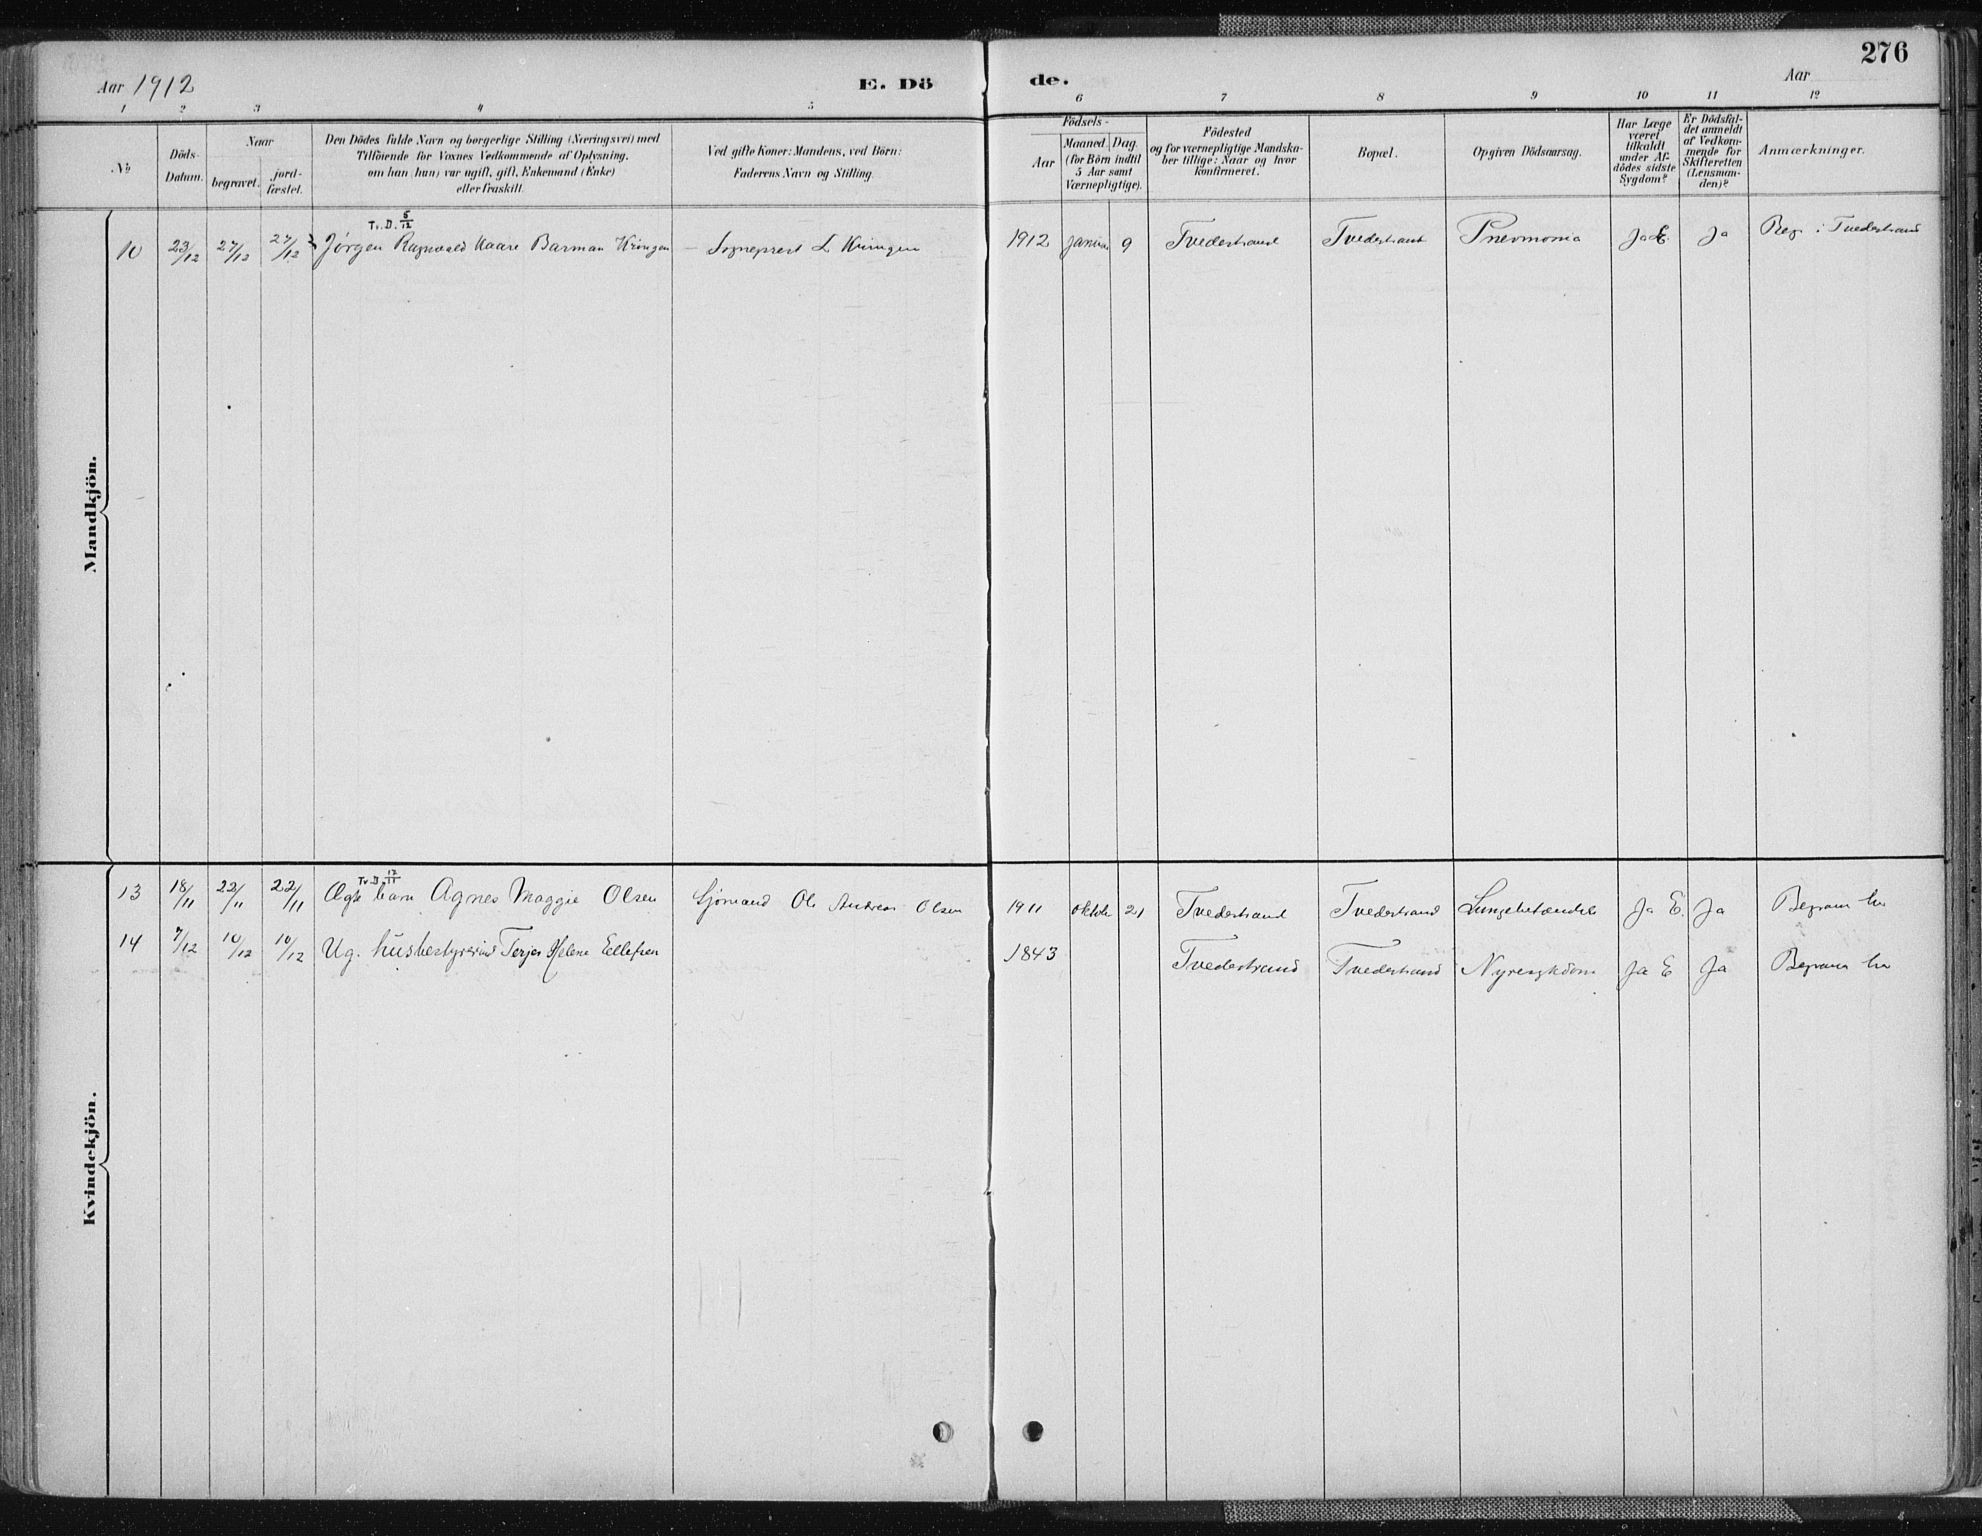 276
Aar 1912
E. Dö de.
Aar
1 2 3 4 5 6 7 8 9 10 11 12
№
Döds-
Datum.
Naar
begravet.
jord-
fæstet.
Den Dödes fulde Navn og borgerlige Stilling (Næringsvei) med
Tilföiende for Voxnes Vedkommende af Oplysning,
om han (hun) var ugift, gift, Enkemand (Enke)
eller fraskilt.
Ved gifte Koner: Mandens, ved Börn:
Faderens Navn og Stilling.
Födsels-
Aar
Maaned. Dag.
(for Börn indtil
5 Aar samt
Værnepligtige).
Födested
og for værnepligtige Mandska-
ber tillige: Naar og hvor
konfirmeret.
Bopæl.
Opgiven Dödsaarsag.
Har Læge
været
tilkaldt
under Af-
dödes sidste
Sygdom?
Er Dödsfal-
det anmeldt
af Vedkom-
mende for
Skifteretten
(Lensman-
den)?
Anmærkninger.
Mandkjön.
Tv. D. 5/12
10 23/12 27/12 27/12 Jörgen Ragnvald Kaare Barman Kringen — Sogneprest L Kringen 1912 Januar 9 Tvedestrand Tvedestrand Pneumonia Ja E. Ja Beg. i Tvedestrand
Kvindekjön.
Tv. D. 17/11
13 18/11 22/11 22/11 Ægte barn Agnes Maggie Olsen Sjömand Ole Andreas Olsen 1911 oktober 21 Tvedestrand Tvedestrand Lungebetændelse Ja E. Ja Begravn
14 7/12 10/12 10/12 Ug. husbestyrerind Terjer Helene Ellefsen 1843 Tvedestrand Tvedestrand Nyresygdom Ja E Ja Begravn